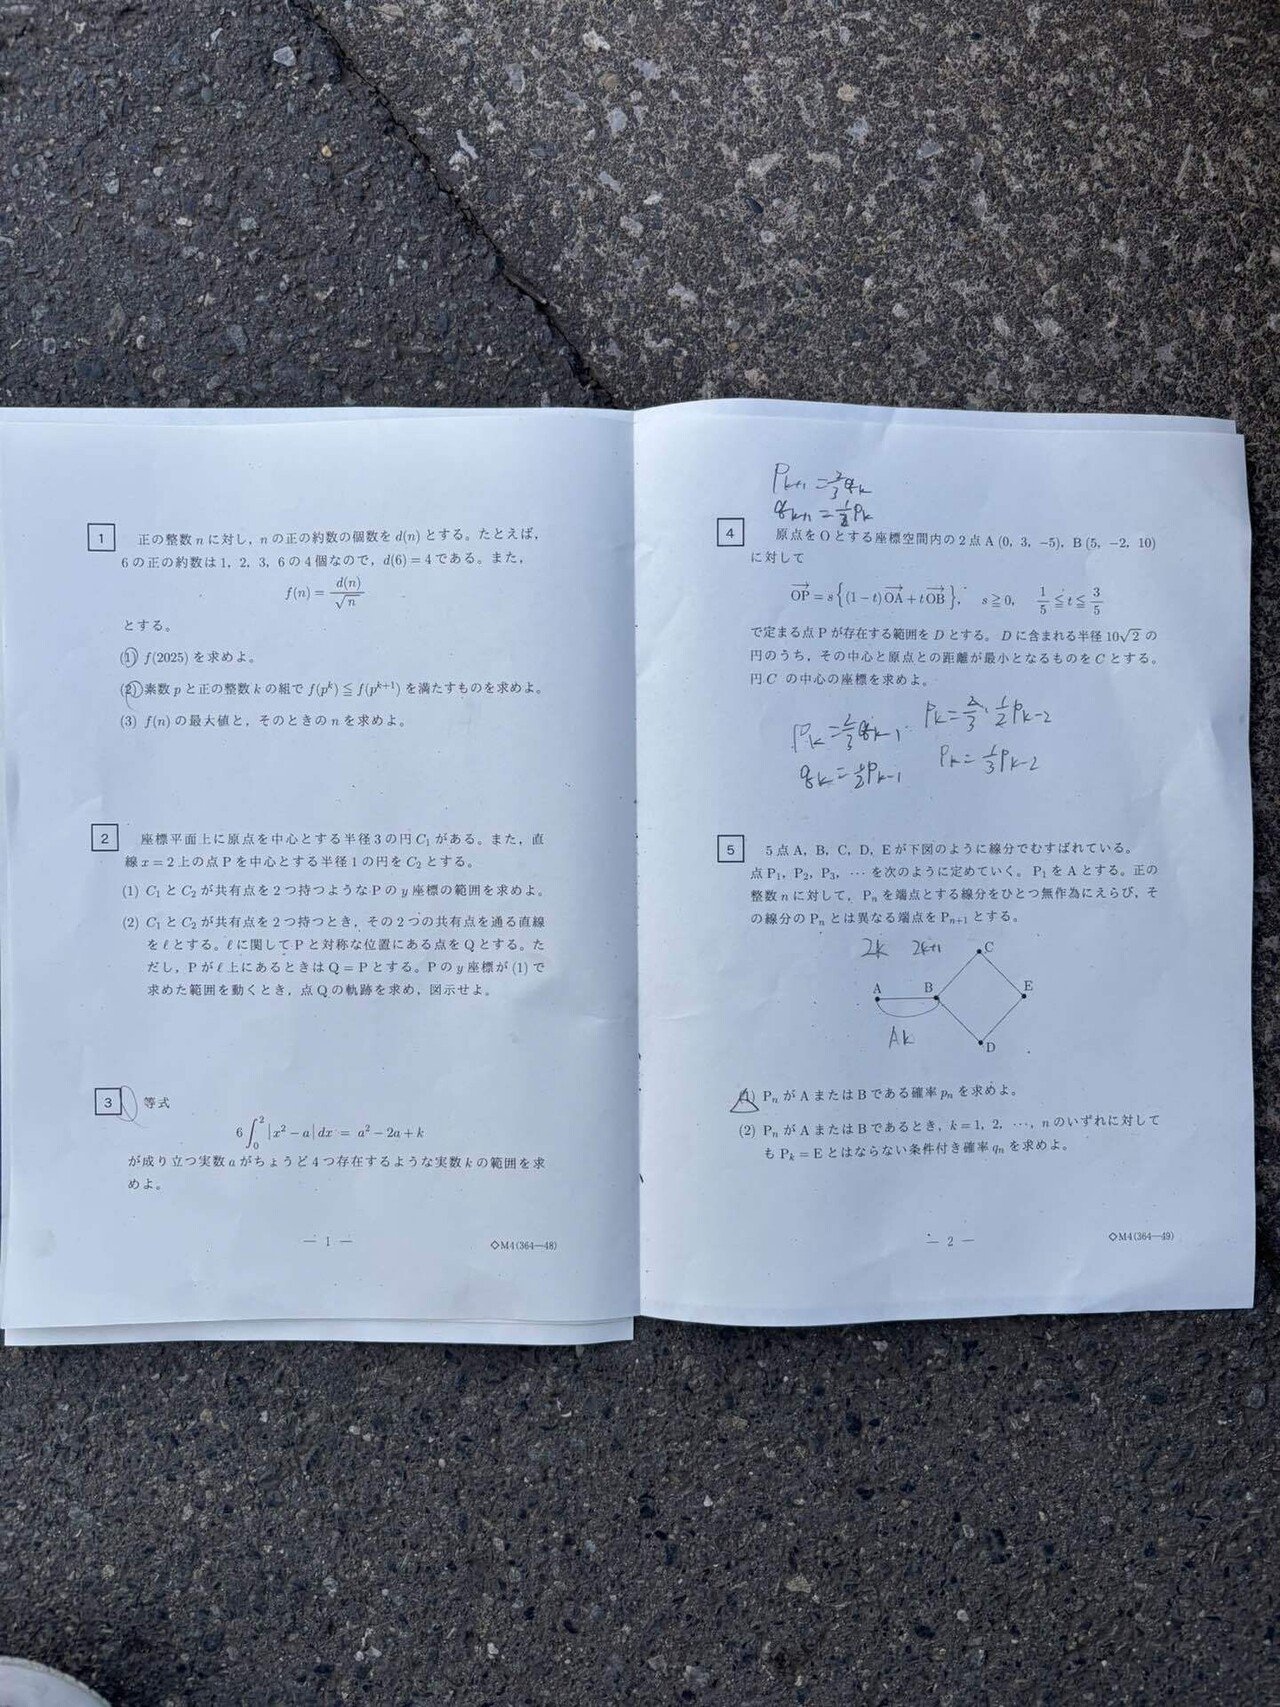 1 正の整数 n に対し，n の正の約数の個数を d(n) とする。たとえば，
6 の正の約数は 1，2，3，6 の 4 個なので，d(6) = 4 である。また，
f(n) = d(n)/√n
とする。
(1) f(2025) を求めよ。
(2) 素数 p と正の整数 k の組で f(p^k) ≦ f(p^{k+1}) を満たすものを求めよ。
(3) f(n) の最大値と，そのときの n を求めよ。
2 座標平面上に原点を中心とする半径 3 の円 C₁ がある。また，直
線 x = 2 上の点 P を中心とする半径 1 の円を C₂ とする。
(1) C₁ と C₂ が共有点を 2 つ持つような P の y 座標の範囲を求めよ。
(2) C₁ と C₂ が共有点を 2 つ持つとき，その 2 つの共有点を通る直線
を ℓ とする。ℓ に関して P と対称な位置にある点を Q とする。た
だし，P が ℓ 上にあるときは Q = P とする。P の y 座標が (1) で
求めた範囲を動くとき，点 Q の軌跡を求め，図示せよ。
3 等式
6∫₀² |x² − a| dx = a² − 2a + k
が成り立つ実数 a がちょうど 4 つ存在するような実数 k の範囲を求
めよ。
— 1 —
◇M4(364—48)
P_{k+1} = 2/3 q_k
q_{k+1} = 1/2 P_k
4 原点を O とする座標空間内の 2 点 A (0，3，−5)，B (5，−2，10)
に対して
OP→ = s{(1 − t)OA→ + tOB→}， s ≧ 0， 1/5 ≦ t ≦ 3/5
で定まる点 P が存在する範囲を D とする。D に含まれる半径 10√2 の
円のうち，その中心と原点との距離が最小となるものを C とする。
円 C の中心の座標を求めよ。
P_k = 2/3 q_{k-1}
q_k = 1/2 P_{k-1}
P_k = 2/3 · 1/2 P_{k-2}
P_k = 1/3 P_{k-2}
5 5 点 A，B，C，D，E が下図のように線分でむすばれている。
点 P₁，P₂，P₃，… を次のように定めていく。P₁ を A とする。正の
整数 n に対して，Pₙ を端点とする線分をひとつ無作為にえらび，そ
の線分の Pₙ とは異なる端点を Pₙ₊₁ とする。
2k 2k+1
C
A B E
Ak
D
(1) Pₙ が A または B である確率 pₙ を求めよ。
(2) Pₙ が A または B であるとき，k = 1，2，…，n のいずれに対して
も P_k = E とはならない条件付き確率 qₙ を求めよ。
— 2 —
◇M4(364—49)